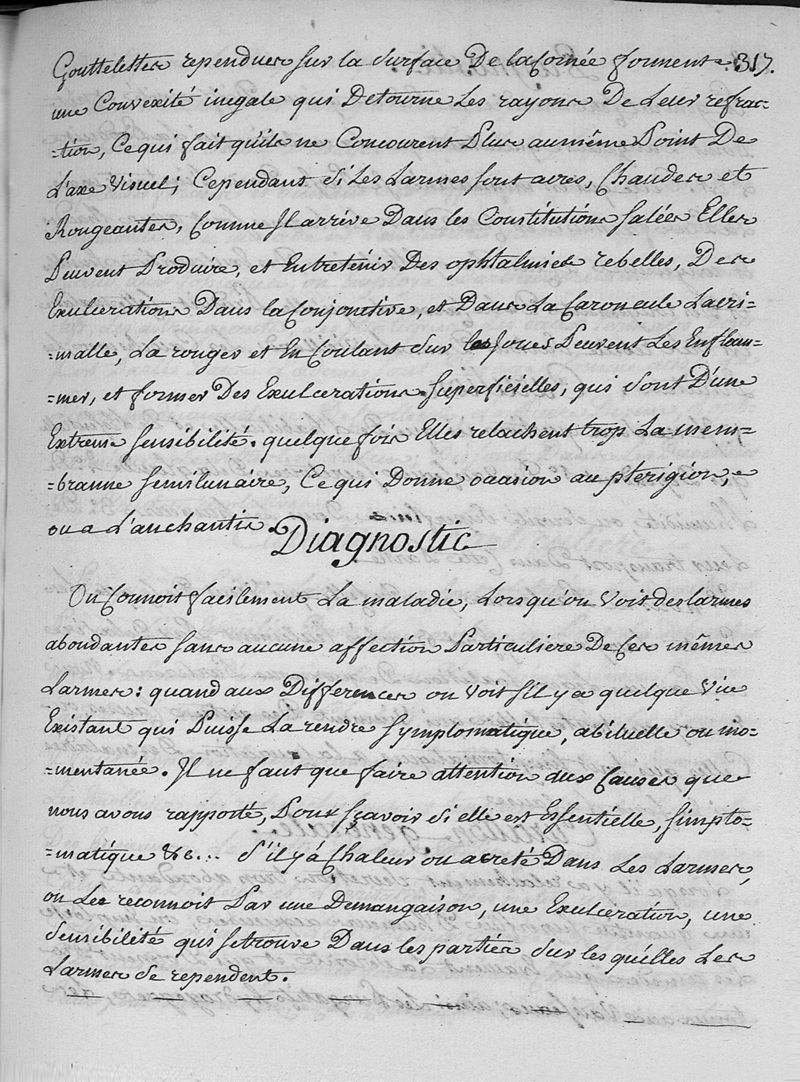 317.
Gouttelettes rependues sur la surface De la Cornée forment
une Convexité inegale qui Detourne Les rayons De Leur refrac-
-tion, Ce qui fait qu'ils ne Concourent Plus au même Point De
L'axe Visuel; Cependant si Les Larmes sont acres, Chaudes et
Rongeantes, Comme Il arrive Dans les Constitutions salées Elles
Peuvent Produire, et Entretenir Des ophtalmies rebelles, Des
Exulcerations Dans la Conjonctive, et Dans La Caroncule Lacri-
-malle, La ronger et En Coulant sur les Joues Peuvent Les Enflam-
-mer, et former Des Exulcerations superficielles, qui sont D'une
Extreme sensibilité. quelque fois Elles relachent trop La mem-
-branne semilunaire, Ce qui Donne occasion au pterigion,
ou a L'anchantis.
Diagnostic
On Connoit facilement La maladie, Lorsqu'on Voit des larmes
abondantes sans aucune affection Particuliere De Ces mêmes
Larmes: quand aux Differences on Voit s'il y a quelque Vice
Existant qui Puisse La rendre symptomatique, abituelle ou mo-
-mentanée. Il ne faut que faire attention aux Causes que
nous avons rapporté, Pour sçavoir si elle est Essentielle, simpto-
-matique &c... s'il y a Chaleur ou acreté Dans Les Larmes,
on Les reconnoit Par une Demangaison, une Exulceration, une
sensibilité qui se trouve Dans les parties sur les quélles Les
Larmes se rependent.